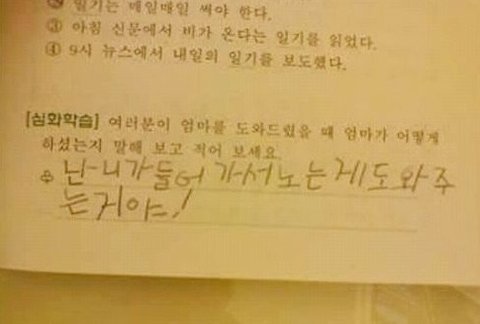 ② 일기는 매일매일 써야 한다.
③ 아침 신문에서 비가 온다는 일기를 읽었다.
④ 9시 뉴스에서 내일의 일기를 보도했다.
[심화학습] 여러분이 엄마를 도와드렸을 때 엄마가 어떻게
하셨는지 말해 보고 적어 보세요.
난 니가 들어 가서 노는 게 도와주
는거야!